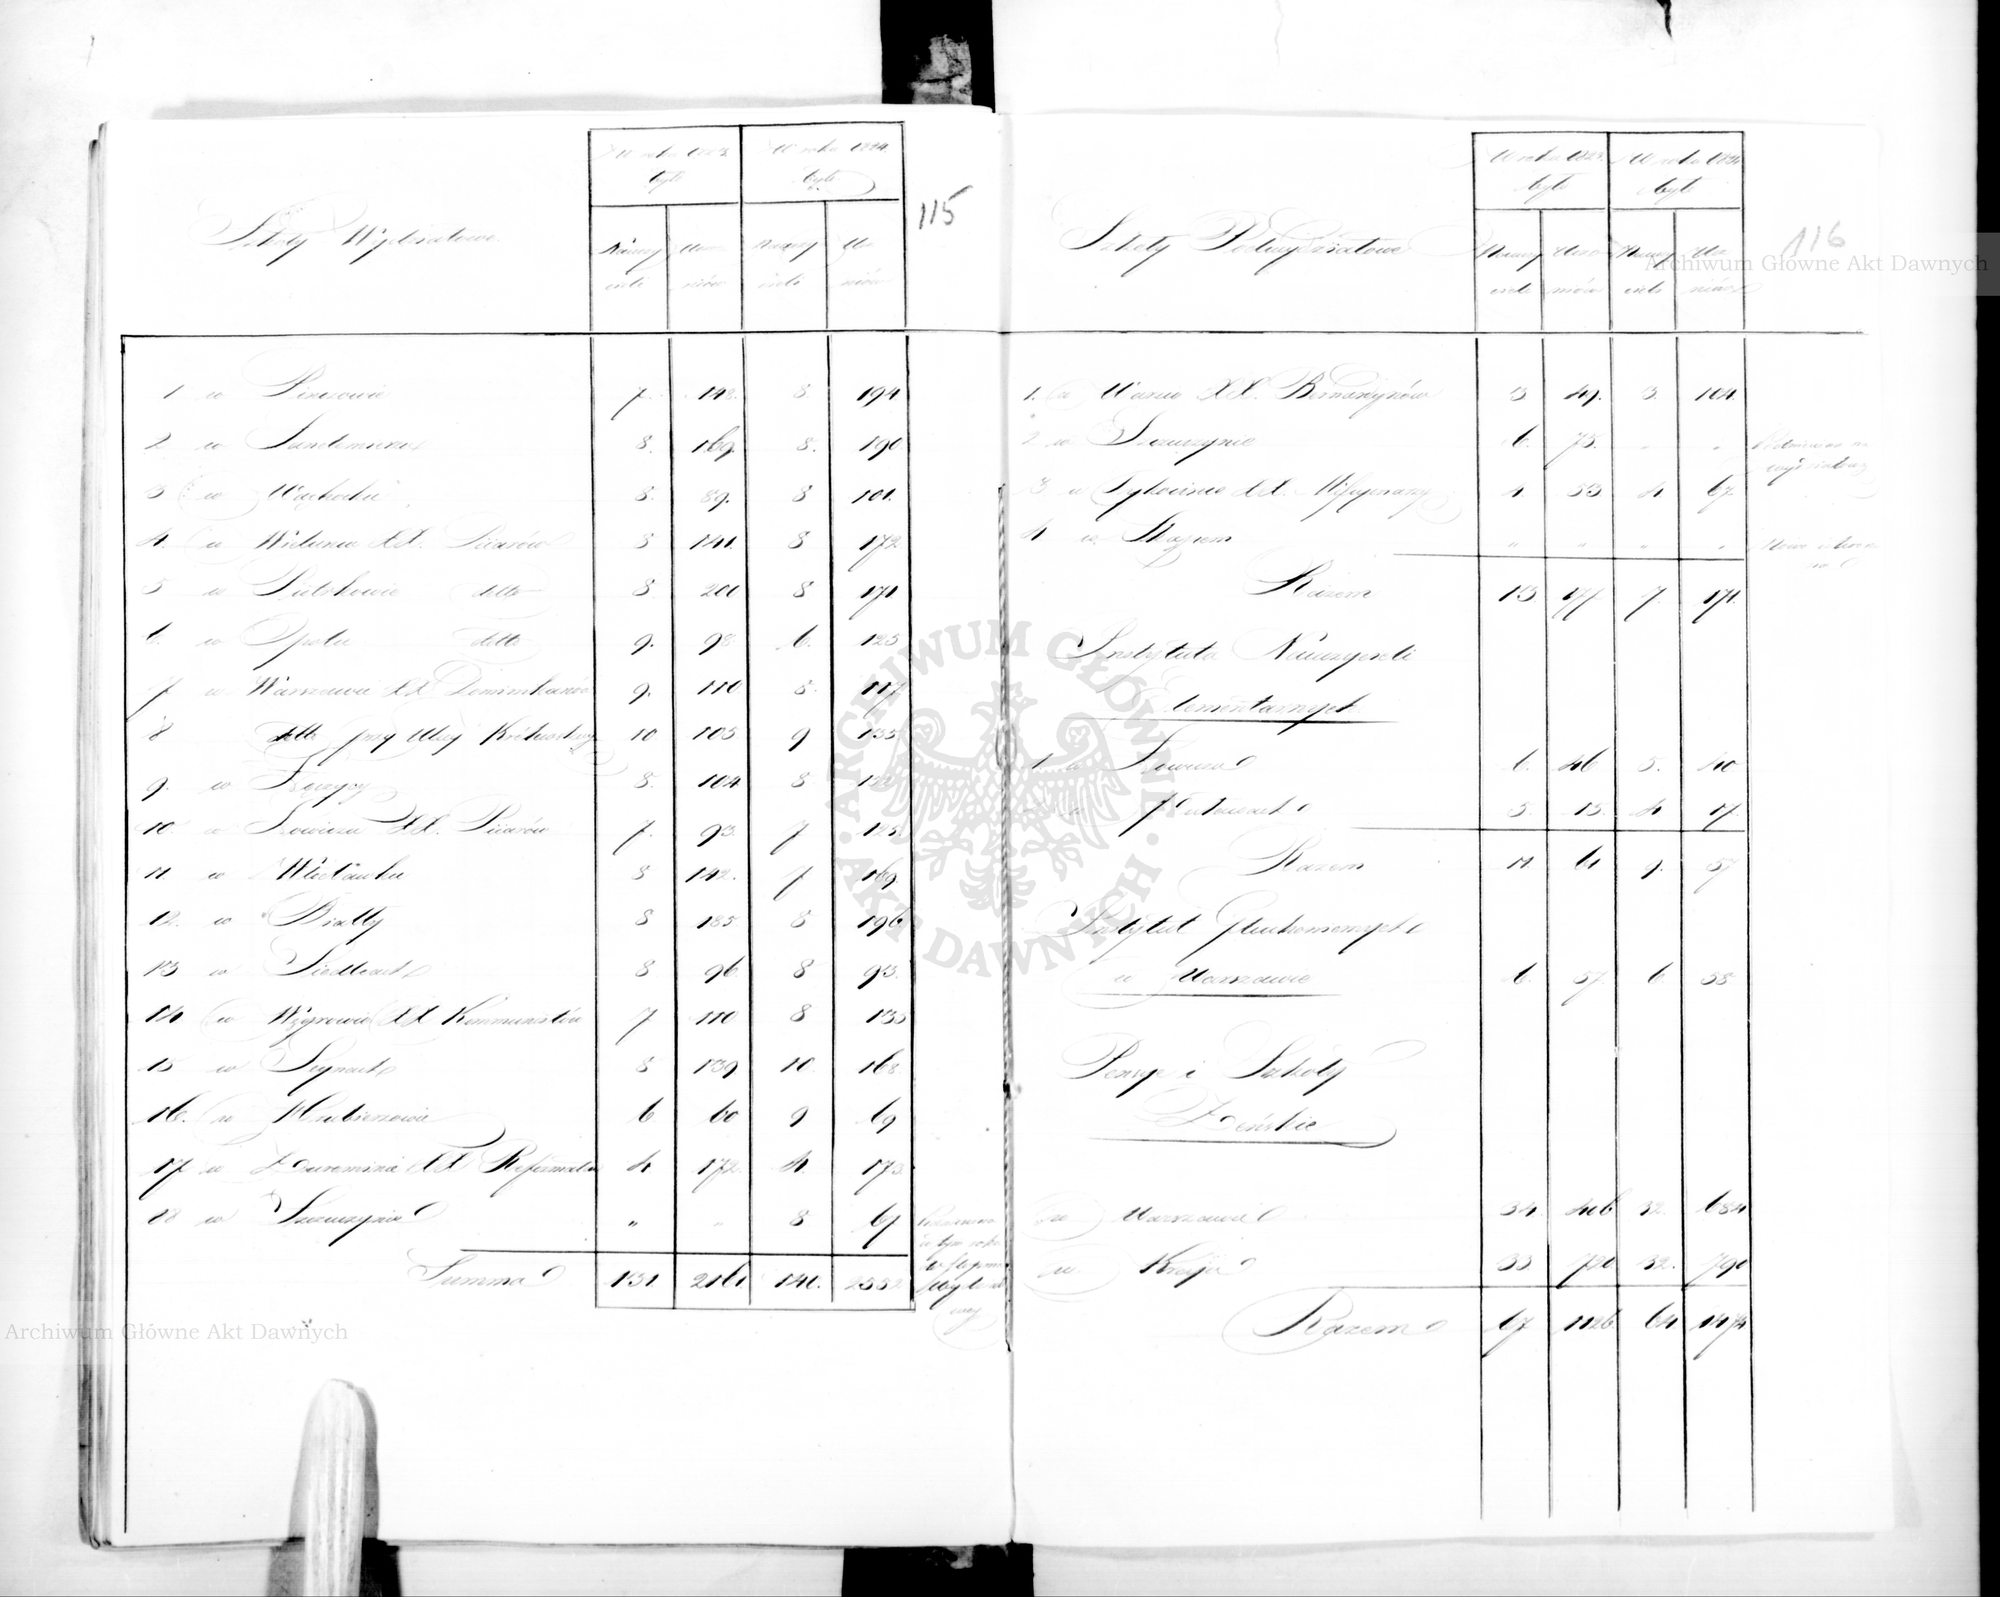 115
Szkoły Wydziałowe
W roku 1823. było
W roku 1824. było
Nauczycieli
Uczniów
Nauczycieli
Uczniów
1 w Pińczowie 7. 148. 8 194
2. w Sandomierzu 8. 169. 8. 190
3 w Wąchocku 8. 89. 8 101.
4. w Wieluniu XX. Piiarów 8 141. 8 172
5 w Piotrkowie detto 8 200 8 171
6. w Opolu detto 9. 98 6. 125
7 w Warszawie XX Dominikanów 9. 110 8. 117
8 detto przy Ulicy Królewskiey 10 105 9 135
9. w Łęczycy 8. 104 8
10. w Łowiczu XX. Piiarów 7. 93. 7 125.
11 w Włocławku 8 142. 7 169
12. w Białły 8 185 8 196
13 w Siedlcach 8 96 8 93.
14 w Węgrowie XX Kommunistów 7 110 8 135
15 w Seynach 8 139 10. 168
16. w Hrubieszowie 6 60 9 69
17. w Żurominie XX Reformatów 4 172. 4. 173
18 w Szczuczynie " " 8 67
Summa 131. 2161. 140. 2352
116
Szkoły Podwydziałowe
W roku 1823. było
W roku 1824. było
Nauczycieli
Uczniów
Nauczycieli
Uczniów
1. w Warce XX. Bernardynów 3 49. 3. 104.
2 w Szczuczynie 6. 75. " "
3 w Tykocinie XX. Missyonarzy 4 53 4 67.
4 w " " " "
Razem 13 177 7. 171.
Instytuta Nauczycieli
Elementarnych
1. w Łowiczu 6. 46 5. 40
w Puławach 5. 15. 4 17.
Razem 11. 61 9. 57
Instytut Głuchoniemych
w Warszawie 6. 57. 6 58
Pensye i Szkoły
Żeńskie
w Warszawie 34. 406 32. 684
w Kraju 33 720 32. 790
Razem 67 1126 64 1474
Archiwum Główne Akt Dawnych
ARCHIWUM GŁÓWNE AKT DAWNYCH
Archiwum Główne Akt Dawnych